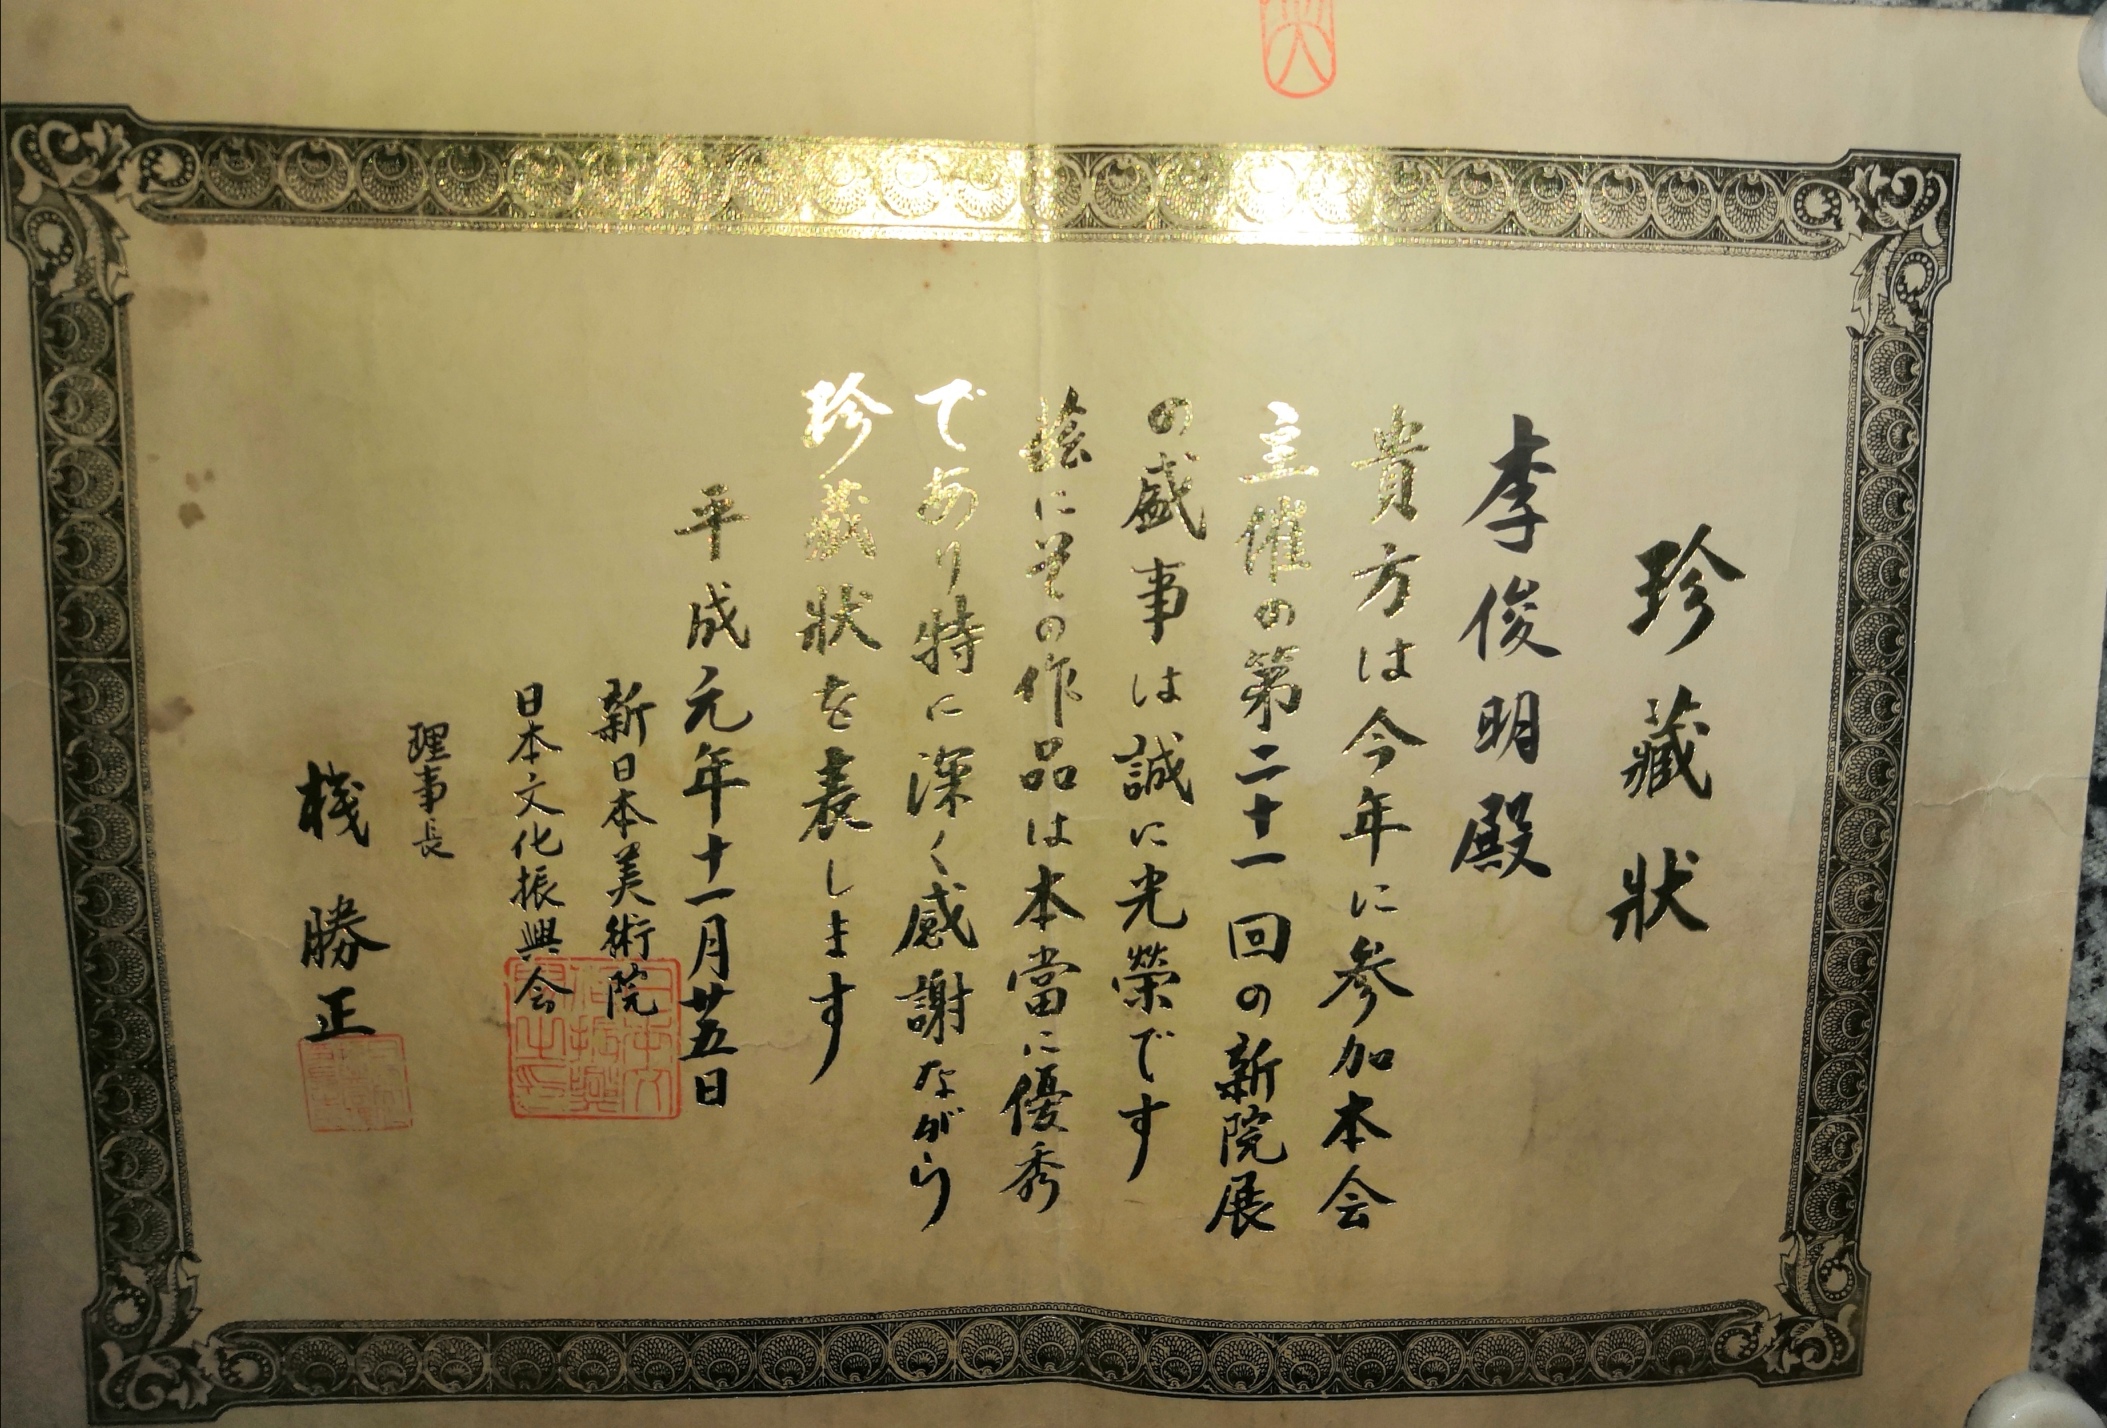 珍藏狀
李俊明殿
貴方は今年に参加本会
主催の第二十一回の新院展
の盛事は誠に光榮です
絵にその作品は本當に優秀
であり特に深く感謝ながら
珍藏狀を表します
平成元年十一月廿五日
新日本美術院
日本文化振興会
理事長
棧勝正